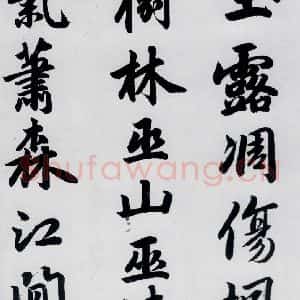 玉露凋傷楓
樹林巫山巫
氣蕭森江間
shufawang.cn